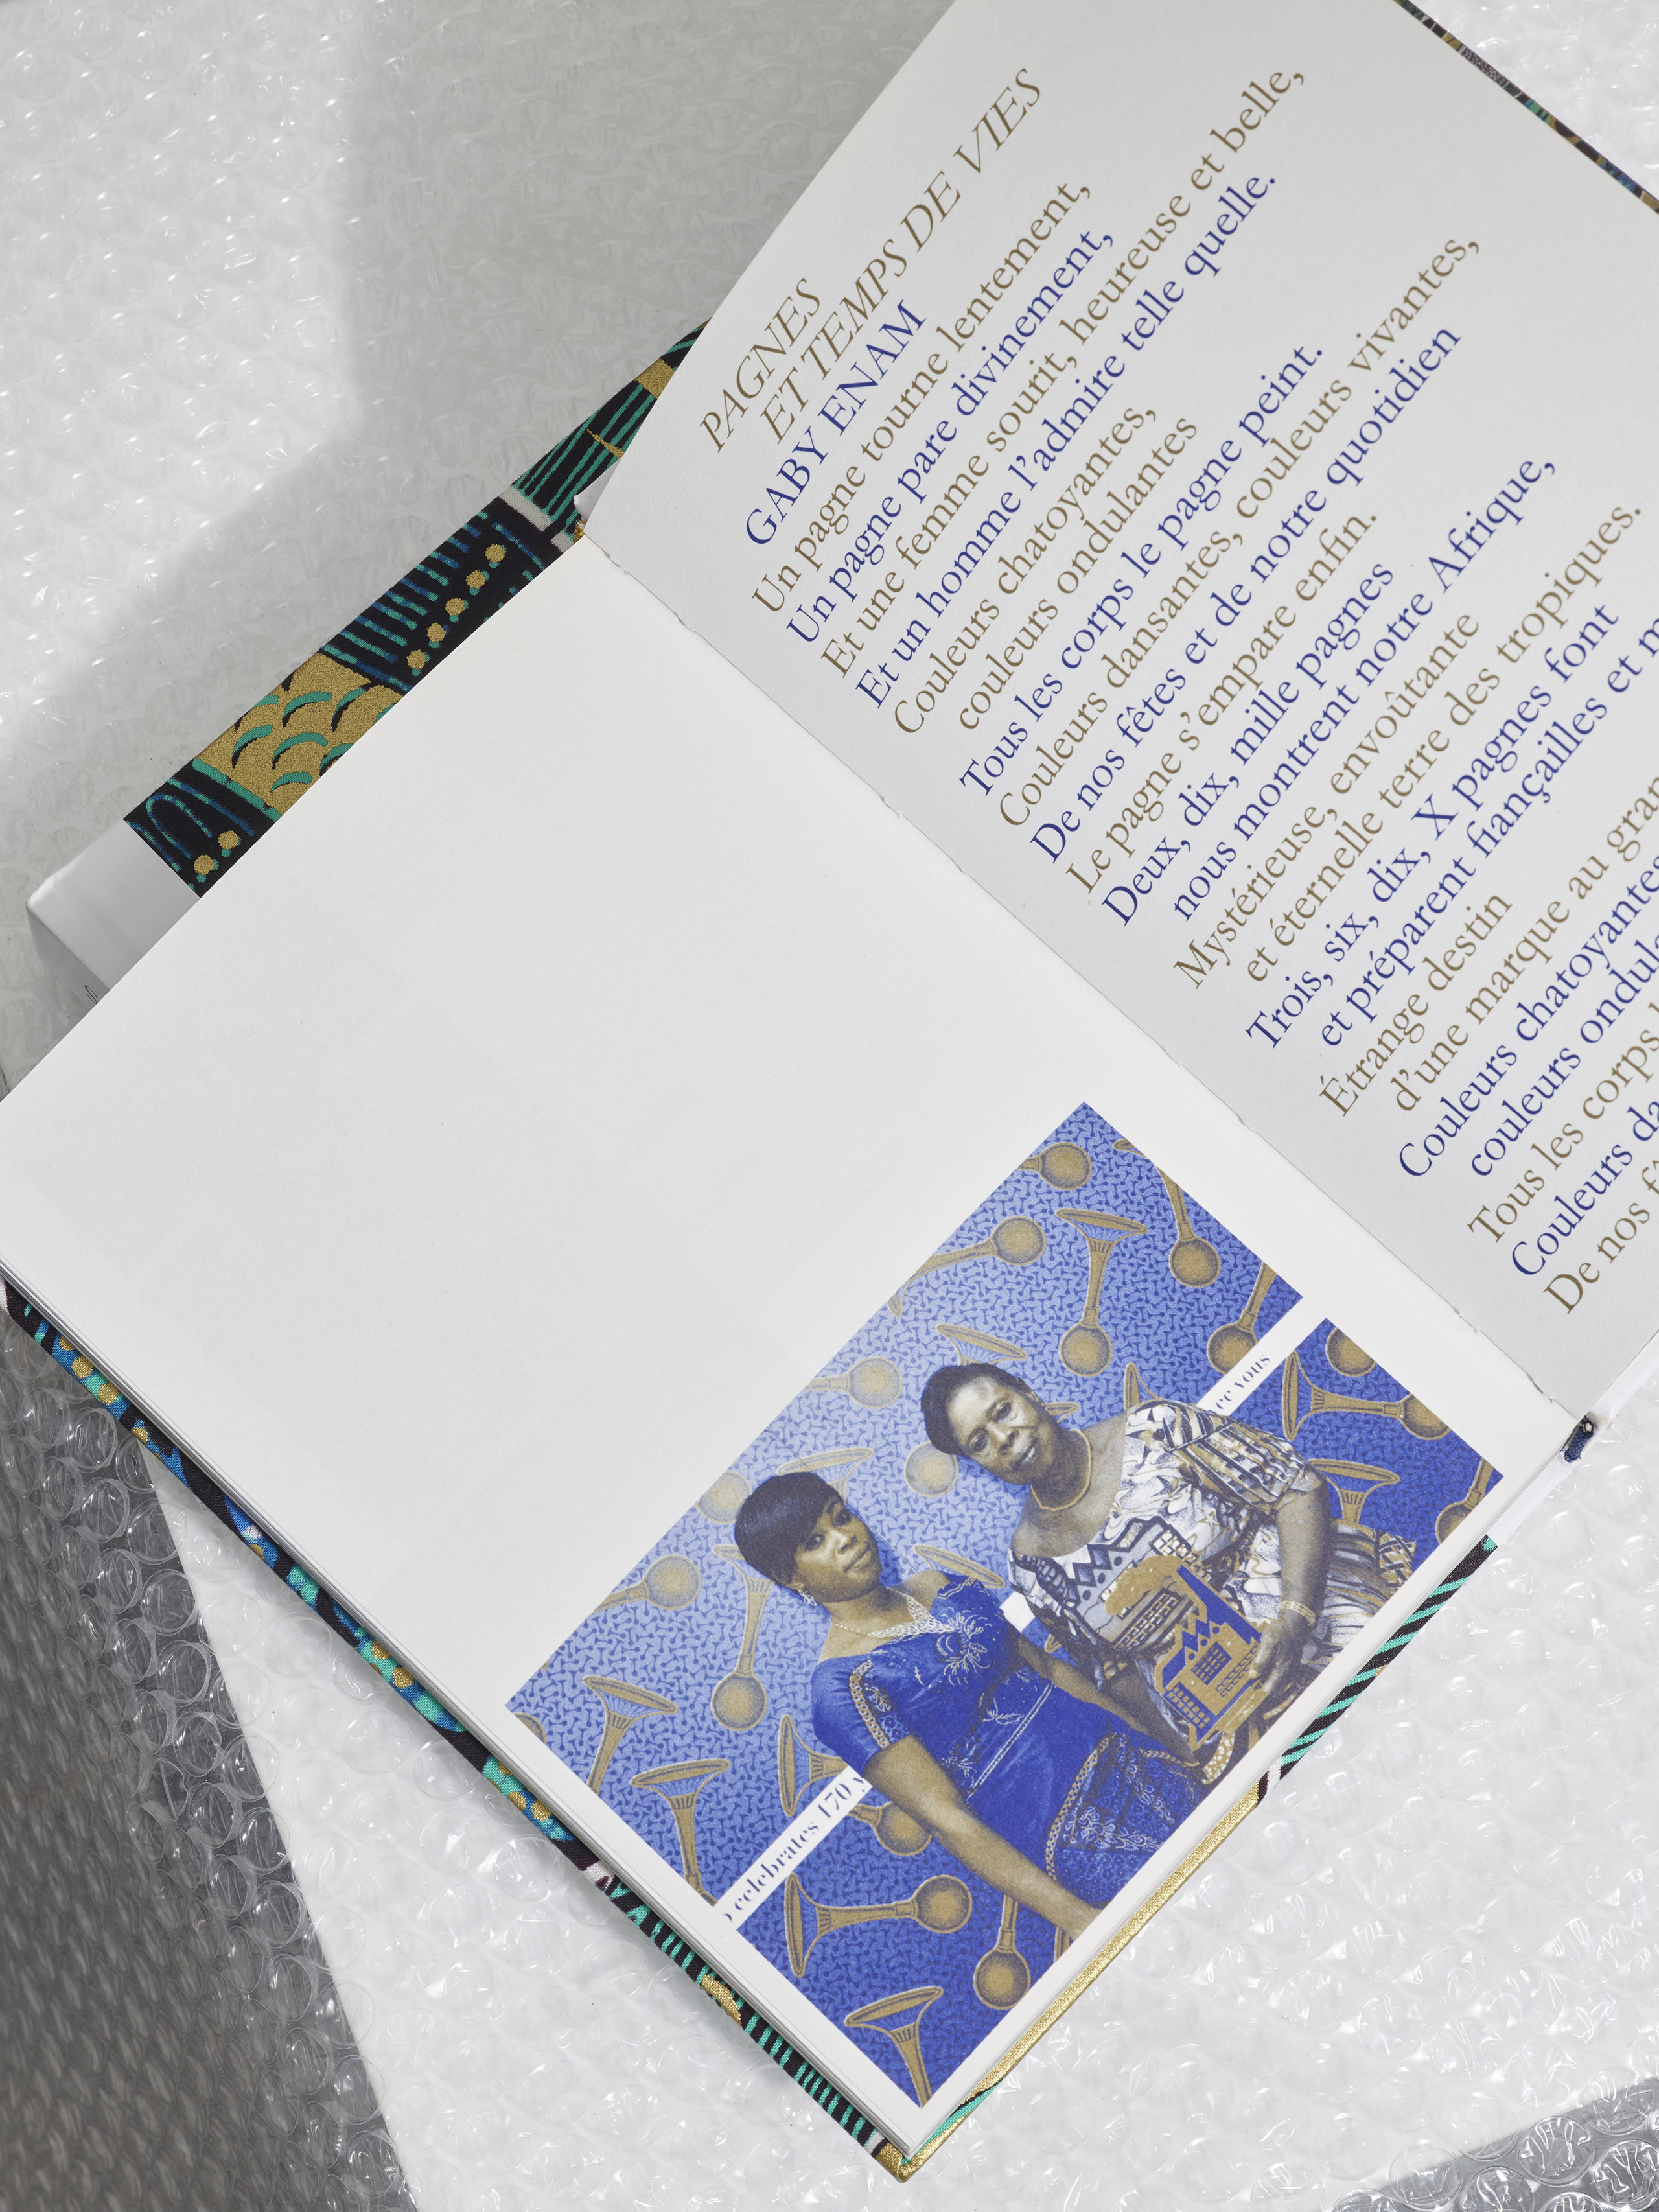 PAGNES
ET TEMPS DE VIES
GABY ENAM
Un pagne tourne lentement,
Un pagne pare divinement,
Et une femme sourit, heureuse et belle,
Et un homme l’admire telle quelle.
Couleurs chatoyantes,
couleurs ondulantes
Tous les corps le pagne peint.
Couleurs dansantes, couleurs vivantes,
De nos fêtes et de notre quotidien
Le pagne s’empare enfin.
Deux, dix, mille pagnes
nous montrent notre Afrique,
Mystérieuse, envoûtante
et éternelle terre des tropiques.
Trois, six, dix, X pagnes font
et préparent fiançailles et
Étrange destin
d’une marque au
Couleurs chatoyantes
couleurs
Couleurs
Tous les corps
De nos
celebrates 170
vous